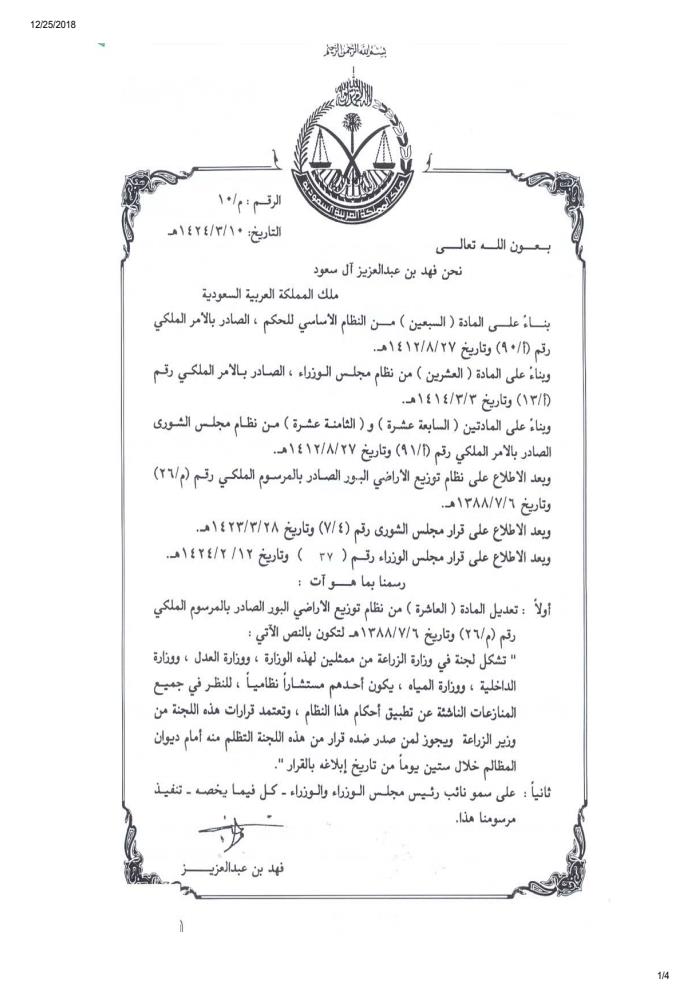 12/25/2018
بسم الله الرحمن الرحيم
ملك المملكة العربية السعودية
الرقم : م/١٠
التاريخ: ١٤٢٤/٣/١٠هـ
بـعـون اللـه تعالـى
نحن فهد بن عبدالعزيز آل سعود
ملك المملكة العربية السعودية
بنــاءً علــى المادة ( السبعين ) مــن النظام الأساسي للحكم ، الصادر بالأمر الملكي
رقم (أ/٩٠) وتاريخ ١٤١٢/٨/٢٧هـ.
وبناءً على المادة ( العشرين ) من نظام مجلس الوزراء ، الصادر بالأمر الملكي رقم
(أ/١٣) وتاريخ ١٤١٤/٣/٣هـ.
وبناءً على المادتين ( السابعة عشرة ) و ( الثامنة عشرة ) من نظام مجلس الشورى
الصادر بالأمر الملكي رقم (أ/٩١) وتاريخ ١٤١٢/٨/٢٧هـ.
وبعد الاطلاع على نظام توزيع الأراضي البور الصادر بالمرسوم الملكي رقم (م/٢٦)
وتاريخ ١٣٨٨/٧/٦هـ.
وبعد الاطلاع على قرار مجلس الشورى رقم (٧/٤) وتاريخ ١٤٢٣/٣/٢٨هـ.
وبعد الاطلاع على قرار مجلس الوزراء رقـم ( ٣٧ ) وتاريخ ١٢ /١٤٢٤/٢هـ.
رسمنا بما هــو آت :
أولاً : تعديل المادة ( العاشرة ) من نظام توزيع الأراضي البور الصادر بالمرسوم الملكي
رقم (م/٢٦) وتاريخ ١٣٨٨/٧/٦هـ لتكون بالنص الآتي :
" تشكل لجنة في وزارة الزراعة من ممثلين لهذه الوزارة ، ووزارة العدل ، ووزارة
الداخلية ، ووزارة المياه ، يكون أحدهم مستشاراً نظامياً ، للنظر في جميع
المنازعات الناشئة عن تطبيق أحكام هذا النظام ، وتعتمد قرارات هذه اللجنة من
وزير الزراعة ويجوز لمن صدر ضده قرار من هذه اللجنة التظلم منه أمام ديوان
المظالم خلال ستين يوماً من تاريخ إبلاغه بالقرار ".
ثانياً : على سمو نائب رئيس مجلس الوزراء والوزراء ـ كل فيما يخصه ـ تنفيذ
مرسومنا هذا.
فهد بن عبدالعزيـــز
1/4